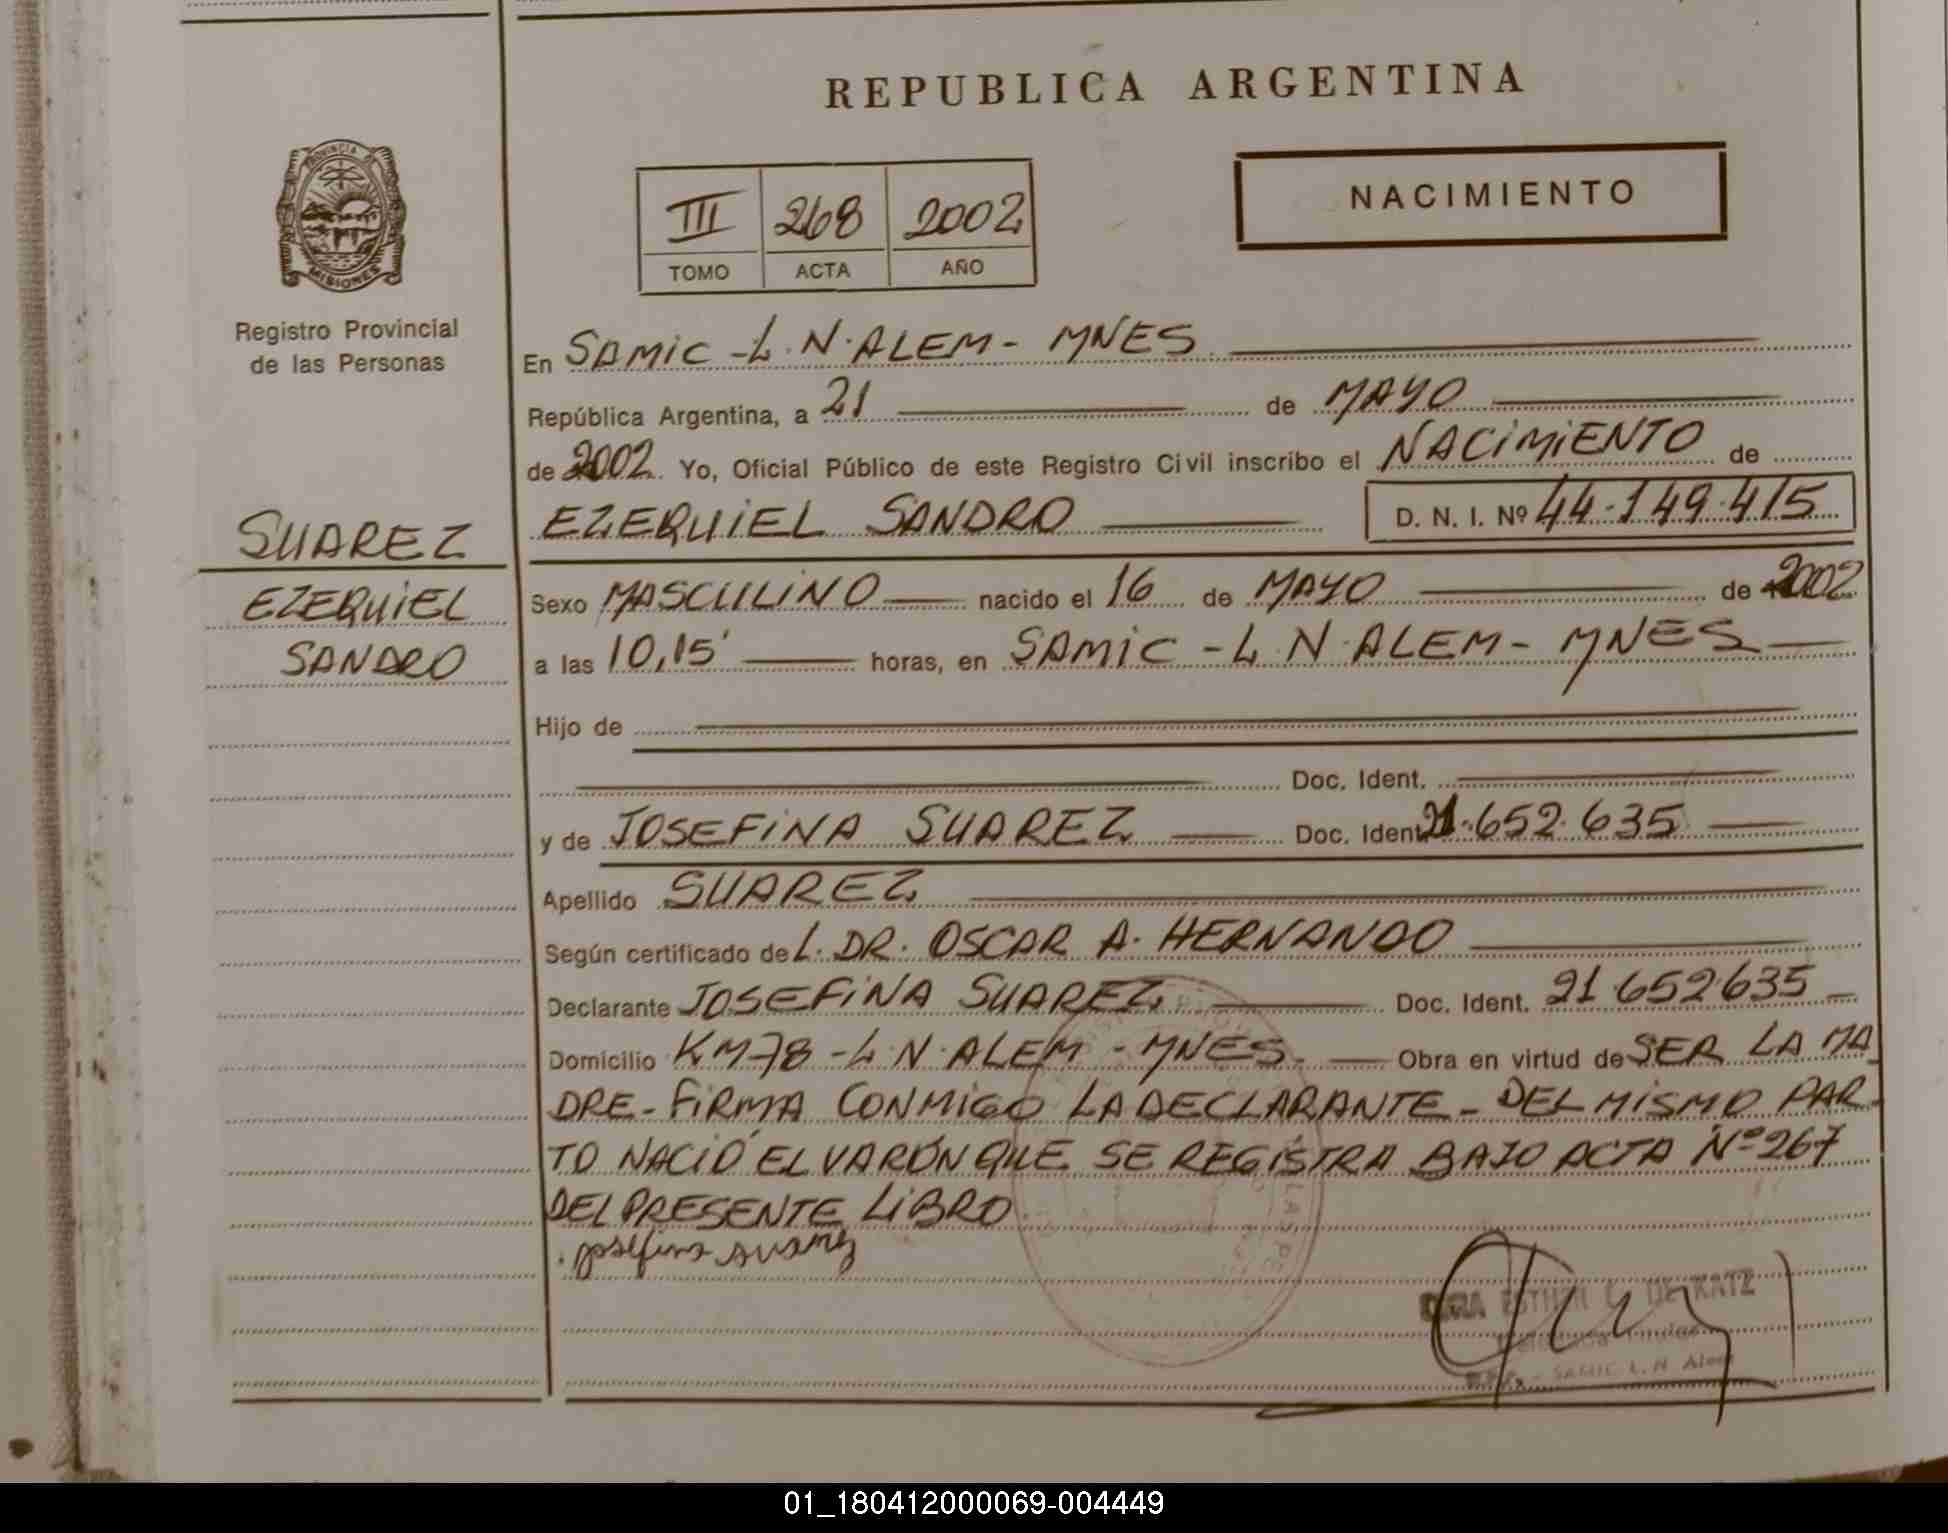 REPUBLICA ARGENTINA
PROVINCIA DE
MISIONES
Registro Provincial
de las Personas
NACIMIENTO
III 268 2002
TOMO ACTA AÑO
En SAMIC - L. N. ALEM - MNES
República Argentina, a 21 de MAYO
de 2002. Yo, Oficial Público de este Registro Civil inscribo el NACIMIENTO de
EZEQUIEL SANDRO D. N. I. Nº 44.149.415
SUAREZ
EZEQUIEL
SANDRO
Sexo MASCULINO nacido el 16 de MAYO de 2002
a las 10,15' horas, en SAMIC - L. N. ALEM - MNES
Hijo de
Doc. Ident.
y de JOSEFINA SUAREZ Doc. Ident. 21.652.635
Apellido SUAREZ
Según certificado de L. DR. OSCAR A. HERNANDO
Declarante JOSEFINA SUAREZ Doc. Ident. 21.652.635
Domicilio KM 78 - L. N. ALEM - MNES. Obra en virtud de SER LA MA
DRE - FIRMA CONMIGO LA DECLARANTE - DEL MISMO PAR-
TO NACIÓ EL VARÓN QUE SE REGISTRA BAJO ACTA Nº 267
DEL PRESENTE LIBRO.
josefina suarez
ESTHER L. DE KATZ
SAMIC L. N. Alem
01_180412000069-004449